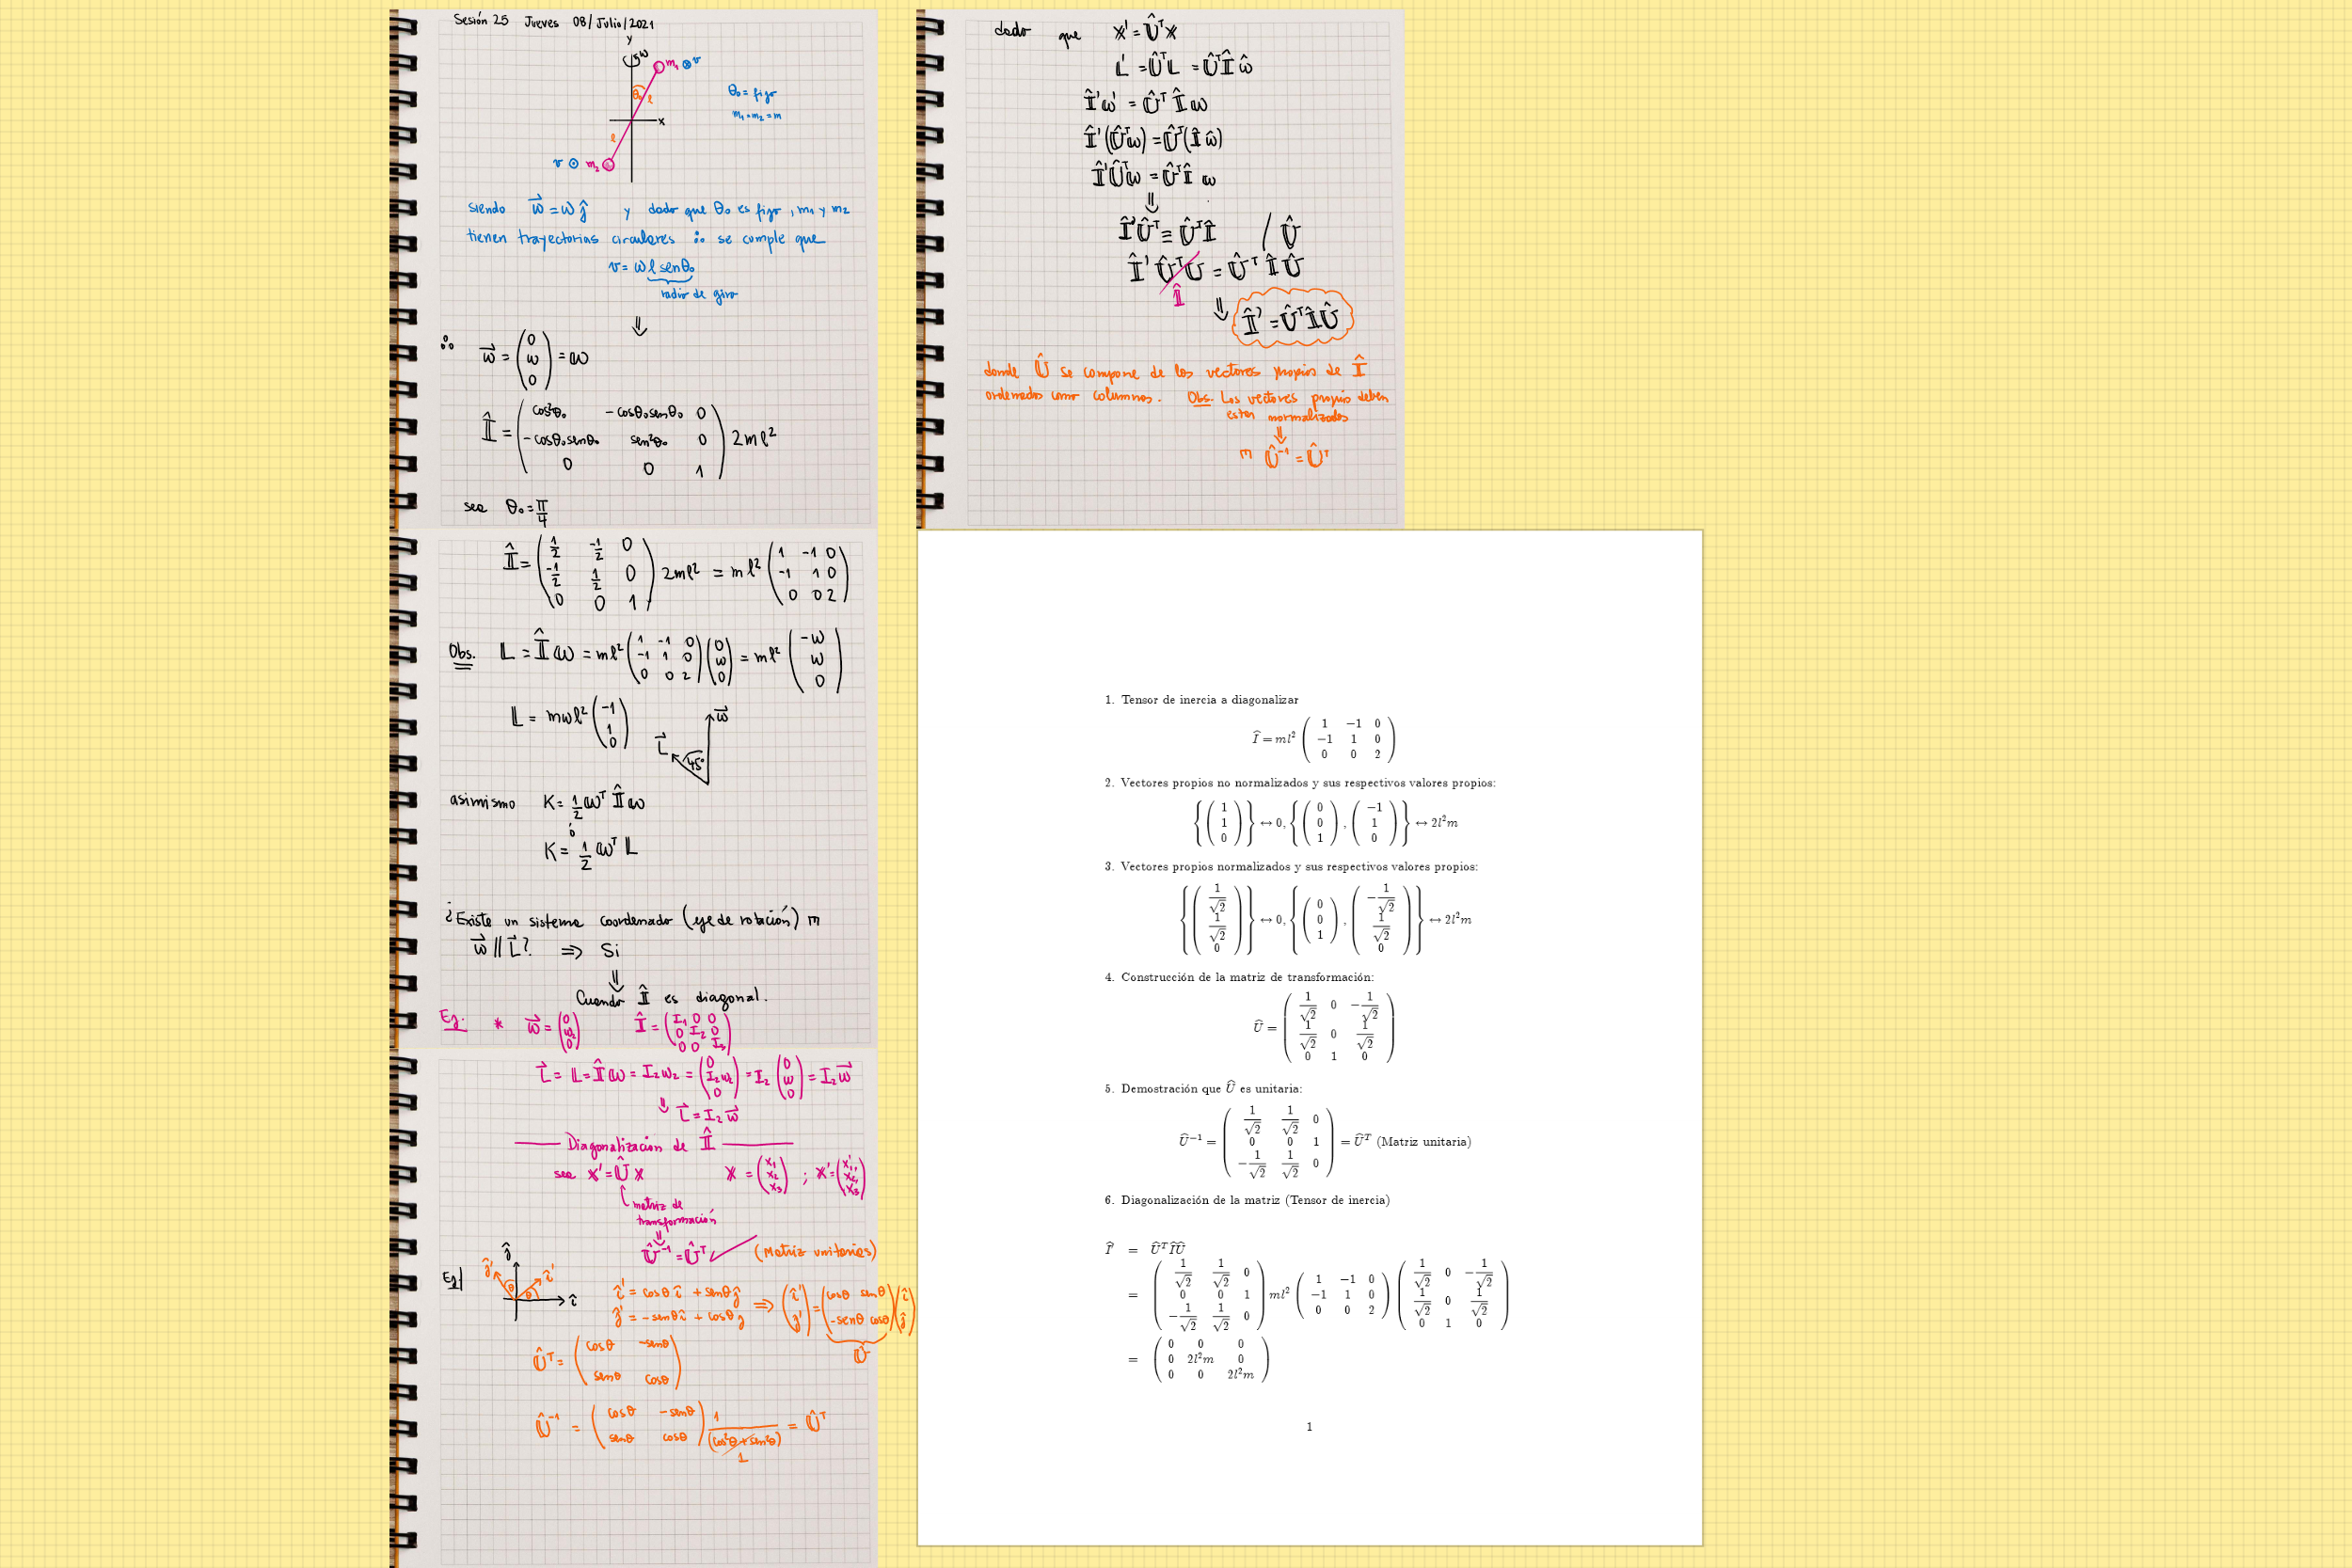 Sesión 25 Jueves 08/Julio/2021
y
ω
m₁ ⊗ v
θ₀
l
θ₀ = fijo
m₁=m₂=m
x
l
v ⊙ m₂
siendo \vec{ω} = ω ĵ y dado que θ₀ es fijo, m₁ y m₂
tienen trayectorias circulares ∴ se cumple que
v = ω l senθ₀
radio de giro
⇓
∴ \vec{ω} = (0; ω; 0) = ω
Î = (cos²θ₀ -cosθ₀senθ₀ 0; -cosθ₀senθ₀ sen²θ₀ 0; 0 0 1) 2ml²
sea θ₀ = π/4
Î = (1/2 -1/2 0; -1/2 1/2 0; 0 0 1) 2ml² = ml² (1 -1 0; -1 1 0; 0 0 2)
Obs. L = Î ω = ml² (1 -1 0; -1 1 0; 0 0 2)(0; ω; 0) = ml² (-ω; ω; 0)
L = mωl² (-1; 1; 0)
\vec{ω}
\vec{L}
45°
asimismo K = 1/2 ωᵀ Î ω
ó
K = 1/2 ωᵀ L
¿Existe un sistema coordenado (eje de rotación) m
\vec{ω} // \vec{L}? ⇒ Si
⇓
Cuando Î es diagonal.
Ej. * \vec{ω} = (0; ω₂; 0) Î = (I₁ 0 0; 0 I₂ 0; 0 0 I₃)
\vec{L} = L = Î ω = I₂ω₂ = (0; I₂ω₂; 0) = I₂ (0; ω; 0) = I₂ \vec{ω}
⇓ \vec{L} = I₂ \vec{ω}
Diagonalización de Î
sea x' = Û x x = (x₁; x₂; x₃) ; x' = (x'₁; x'₂; x'₃)
matriz de
transformación
⇓
Û⁻¹ = Ûᵀ (Matriz unitarias)
Ej
ĵ
ĵ' î'
θ θ
î
î' = cosθ î + senθ ĵ
ĵ' = -senθ î + cosθ ĵ ⇒ (î'; ĵ') = (cosθ senθ; -senθ cosθ)(î; ĵ)
Û
Ûᵀ = (cosθ -senθ; senθ cosθ)
Û⁻¹ = (cosθ -senθ; senθ cosθ) 1/(cos²θ+sen²θ) = Ûᵀ
1
dado que x' = Ûᵀx
L' = ÛᵀL = ÛᵀÎ ω̂
Î'ω' = Ûᵀ Î ω
Î'(Ûᵀω) = Ûᵀ(Î ω̂)
Î'Ûᵀω = ÛᵀÎ ω
⇓
Î'Ûᵀ ≡ ÛᵀÎ / Û
Î' ÛᵀU = Ûᵀ Î Û
1̂
⇓ Î' = ÛᵀÎÛ
donde Û se compone de los vectores propios de Î
ordenados como columnas. Obs. Los vectores propio deben
estar normalizados
⇓
m Û⁻¹ = Ûᵀ
1. Tensor de inercia a diagonalizar
Î = ml² (1 −1 0; −1 1 0; 0 0 2)
2. Vectores propios no normalizados y sus respectivos valores propios:
{(1; 1; 0)} ↔ 0, {(0; 0; 1), (−1; 1; 0)} ↔ 2l²m
3. Vectores propios normalizados y sus respectivos valores propios:
{(1/√2; 1/√2; 0)} ↔ 0, {(0; 0; 1), (−1/√2; 1/√2; 0)} ↔ 2l²m
4. Construcción de la matriz de transformación:
Û = (1/√2 0 −1/√2; 1/√2 0 1/√2; 0 1 0)
5. Demostración que Û es unitaria:
Û⁻¹ = (1/√2 1/√2 0; 0 0 1; −1/√2 1/√2 0) = Ûᵀ (Matriz unitaria)
6. Diagonalización de la matriz (Tensor de inercia)
Î' = ÛᵀÎÛ
= (1/√2 1/√2 0; 0 0 1; −1/√2 1/√2 0) ml² (1 −1 0; −1 1 0; 0 0 2) (1/√2 0 −1/√2; 1/√2 0 1/√2; 0 1 0)
= (0 0 0; 0 2l²m 0; 0 0 2l²m)
1